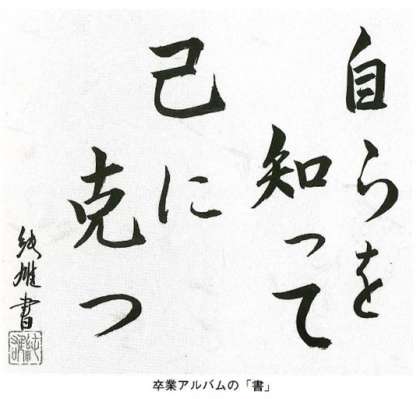 自らを
知って
己に
克つ
雄書
卒業アルバムの「書」